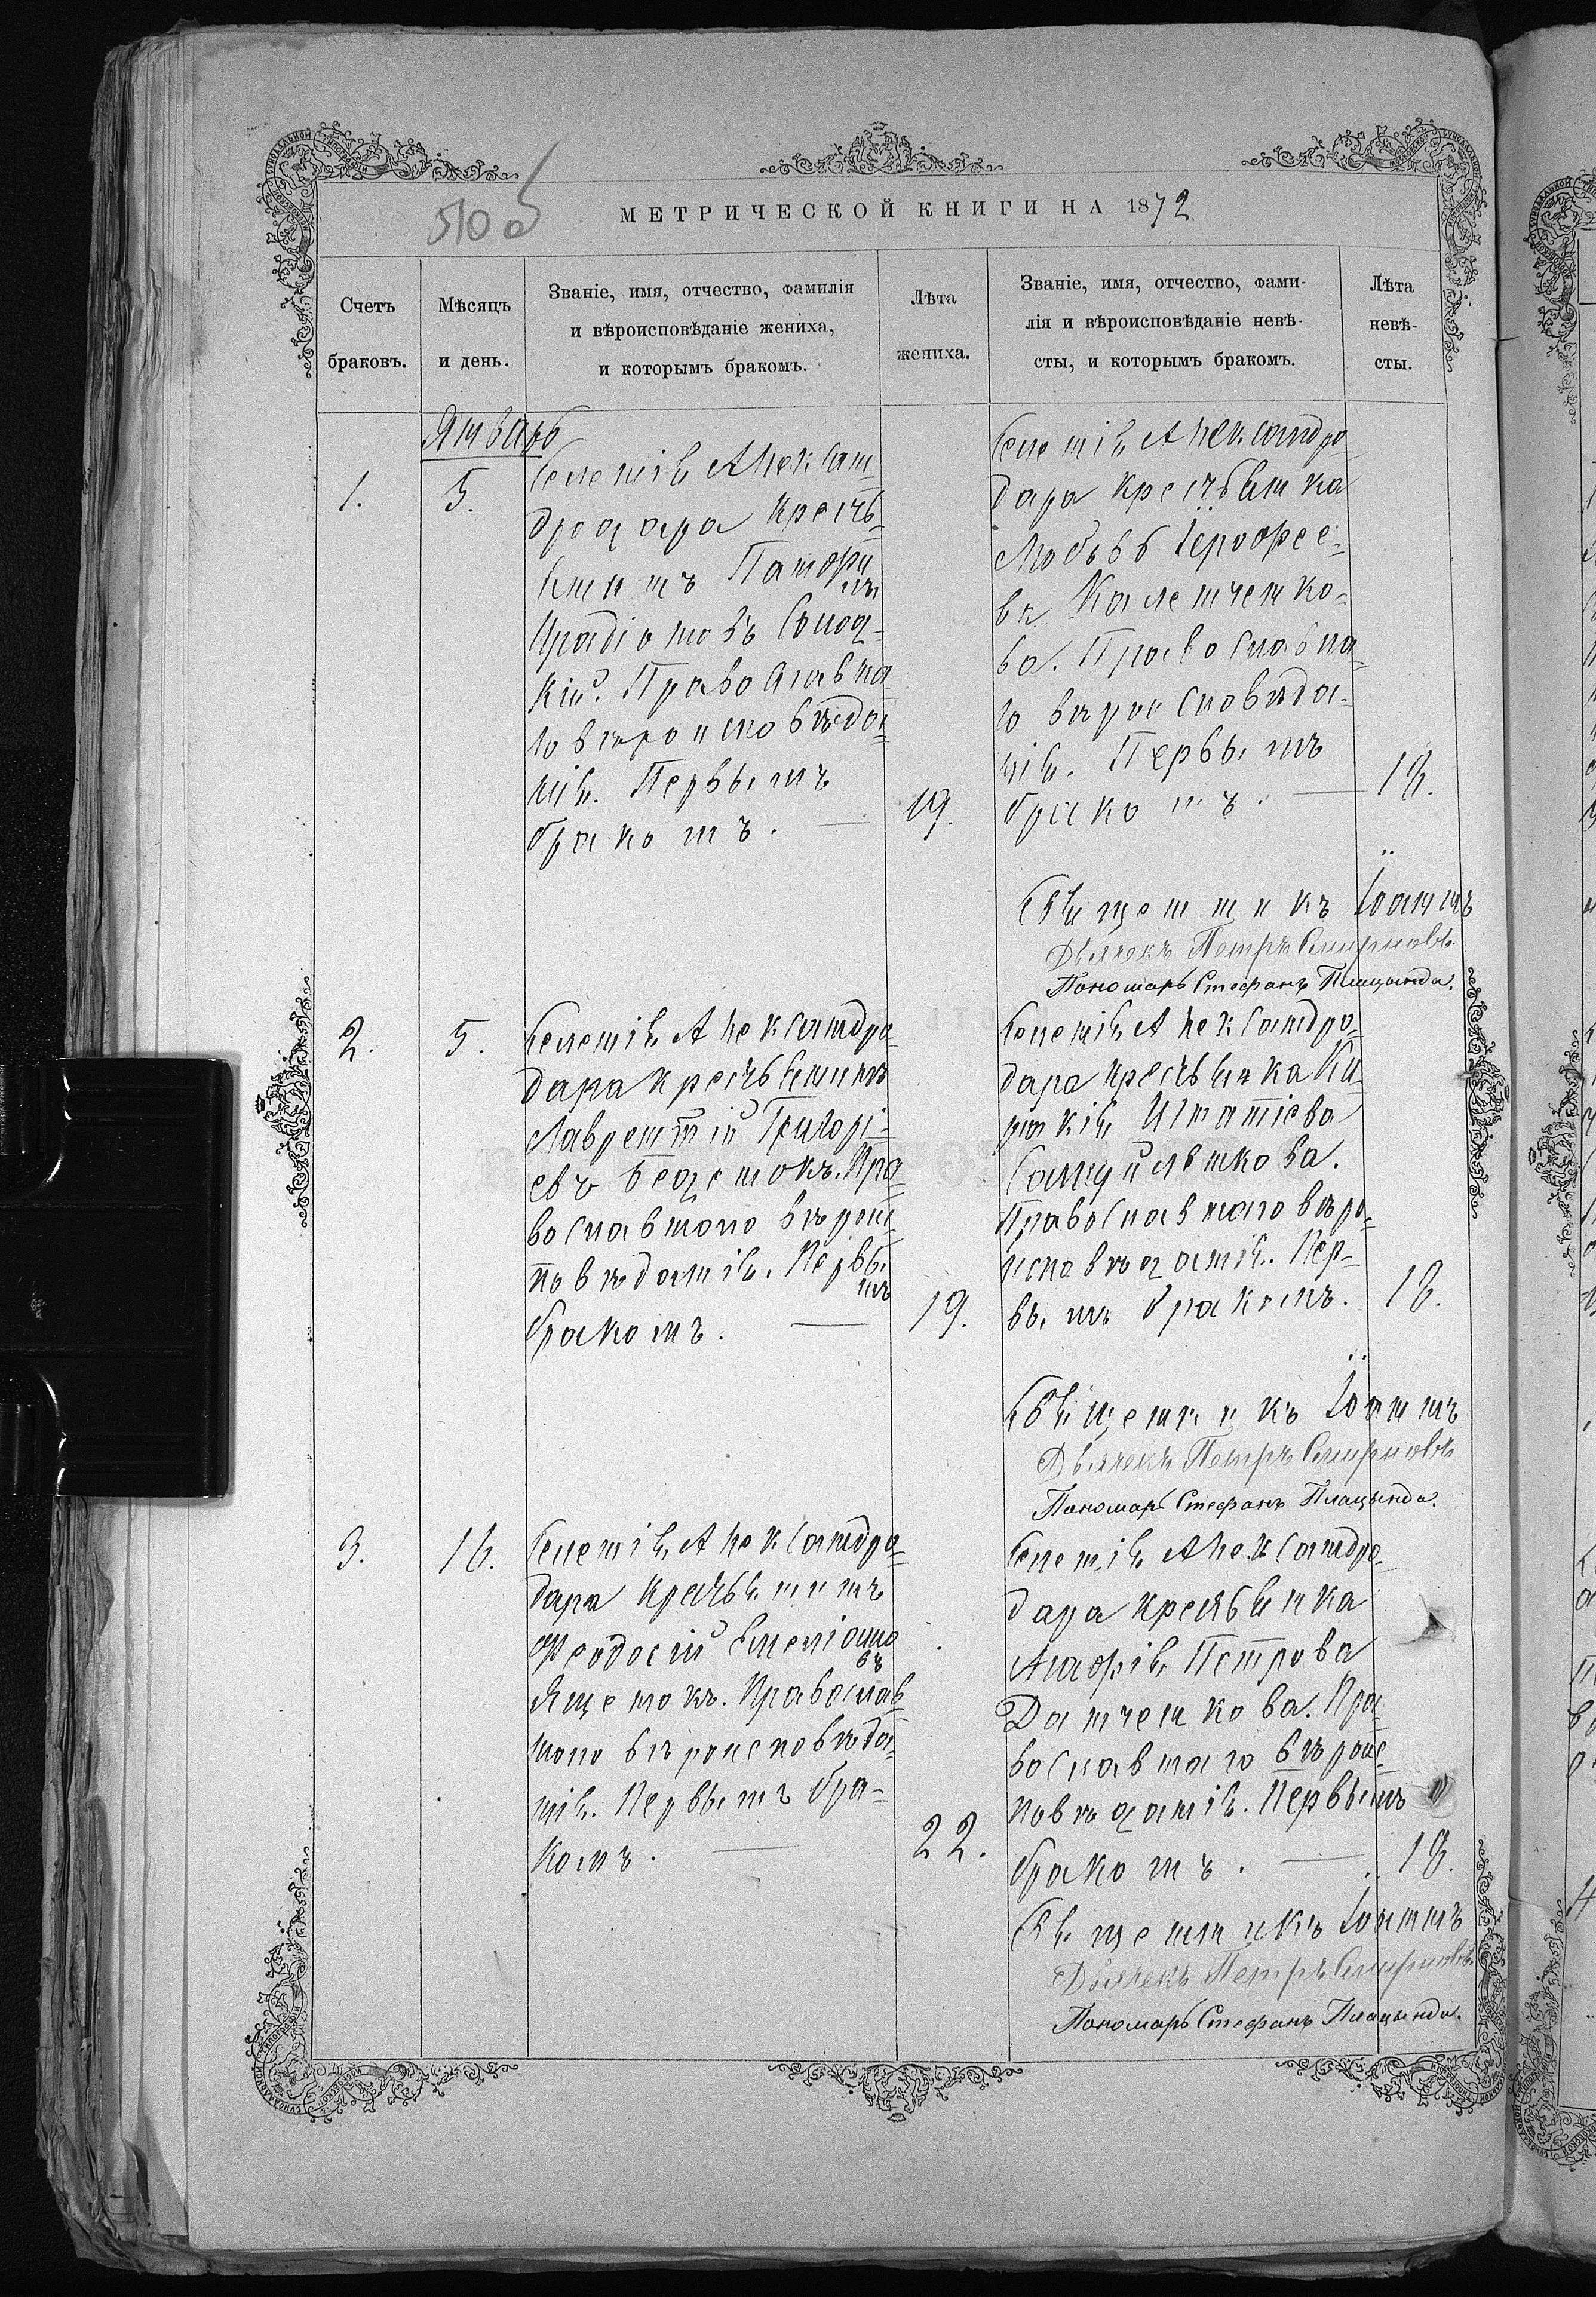 510 об
МЕТРИЧЕСКОЙ КНИГИ НА 1872
Счетъ
браковъ.
Мѣсяцъ
и день.
Званіе, имя, отчество, фамилія
и вѣроисповѣданіе жениха,
и которымъ бракомъ.
Лѣта
жениха.
Званіе, имя, отчество, фами-
лія и вѣроисповѣданіе невѣ-
сты, и которымъ бракомъ.
Лѣта
невѣ-
сты.
Январь
1.
5.
Селенія Алексан=
дродара кресть=
янинъ Памфи
лъ
Иродіоновъ
Православна=
го вѣроисповѣда=
нія. Первымъ
бракомъ.
19.
Селенія Алексанdро
дара крестьянка
Любовь Іерофее=
ва Каленченко=
ва. Православна
го вѣроисповѣда=
нія. Первымъ
бракомъ.
18.
Священникъ Іоаннъ
Дьячекъ Петръ Смирновъ
Пономарь Стефанъ Плацында.
2.
5.
Селенія Александро=
дара крестьянинъ
Лаврентій Григорі=
евъ Пра=
вославного вѣроис=
повѣданія. Первы
мъ
бракомъ.
19.
Селенія Александро=
дара крестьянка Ки=
рікія Игнатіева
Самуиленкова.
Православнаго вѣро=
исповѣданія. Пер=
вымъ бракомъ.
18.
Священникъ Іоаннъ
Дьячекъ Петръ Смирновъ
Пономарь Стефанъ Плацында.
3.
16.
Селенія Александро=
дара крестьянинъ
Феодосій Емеліано
въ
Ященокъ. Православ=
ного вѣроисповѣда=
нія. Первымъ бра=
комъ.
22.
Селенія Александро=
дара крестьянка
Агафія Петрова
Данченкова. Пра=
вославнаго вѣроис=
повѣданія. Первымъ
бракомъ.
18.
Священникъ Іоаннъ
Дьячекъ Петръ Смирновъ
Пономарь Стефанъ Плацында.